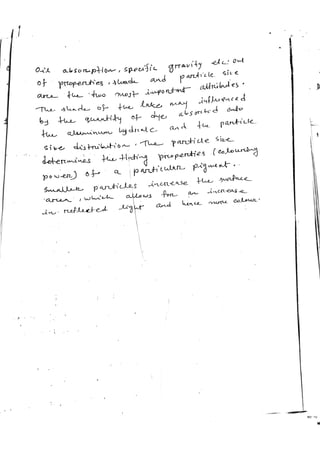 Oil absorption, specific gravity etc. out
of properties, shade and particle size
are the two most important attributes.
The shade of the lake may influenced
by the quantity of dye absorbed onto
the aluminum hydrate and the particle
size distribution. The particle size
determines the tinting properties (colouring
power) of a particular pigment.
Smaller particles increase the surface
area, which allows for an increase
in reflected light and hence more colour.